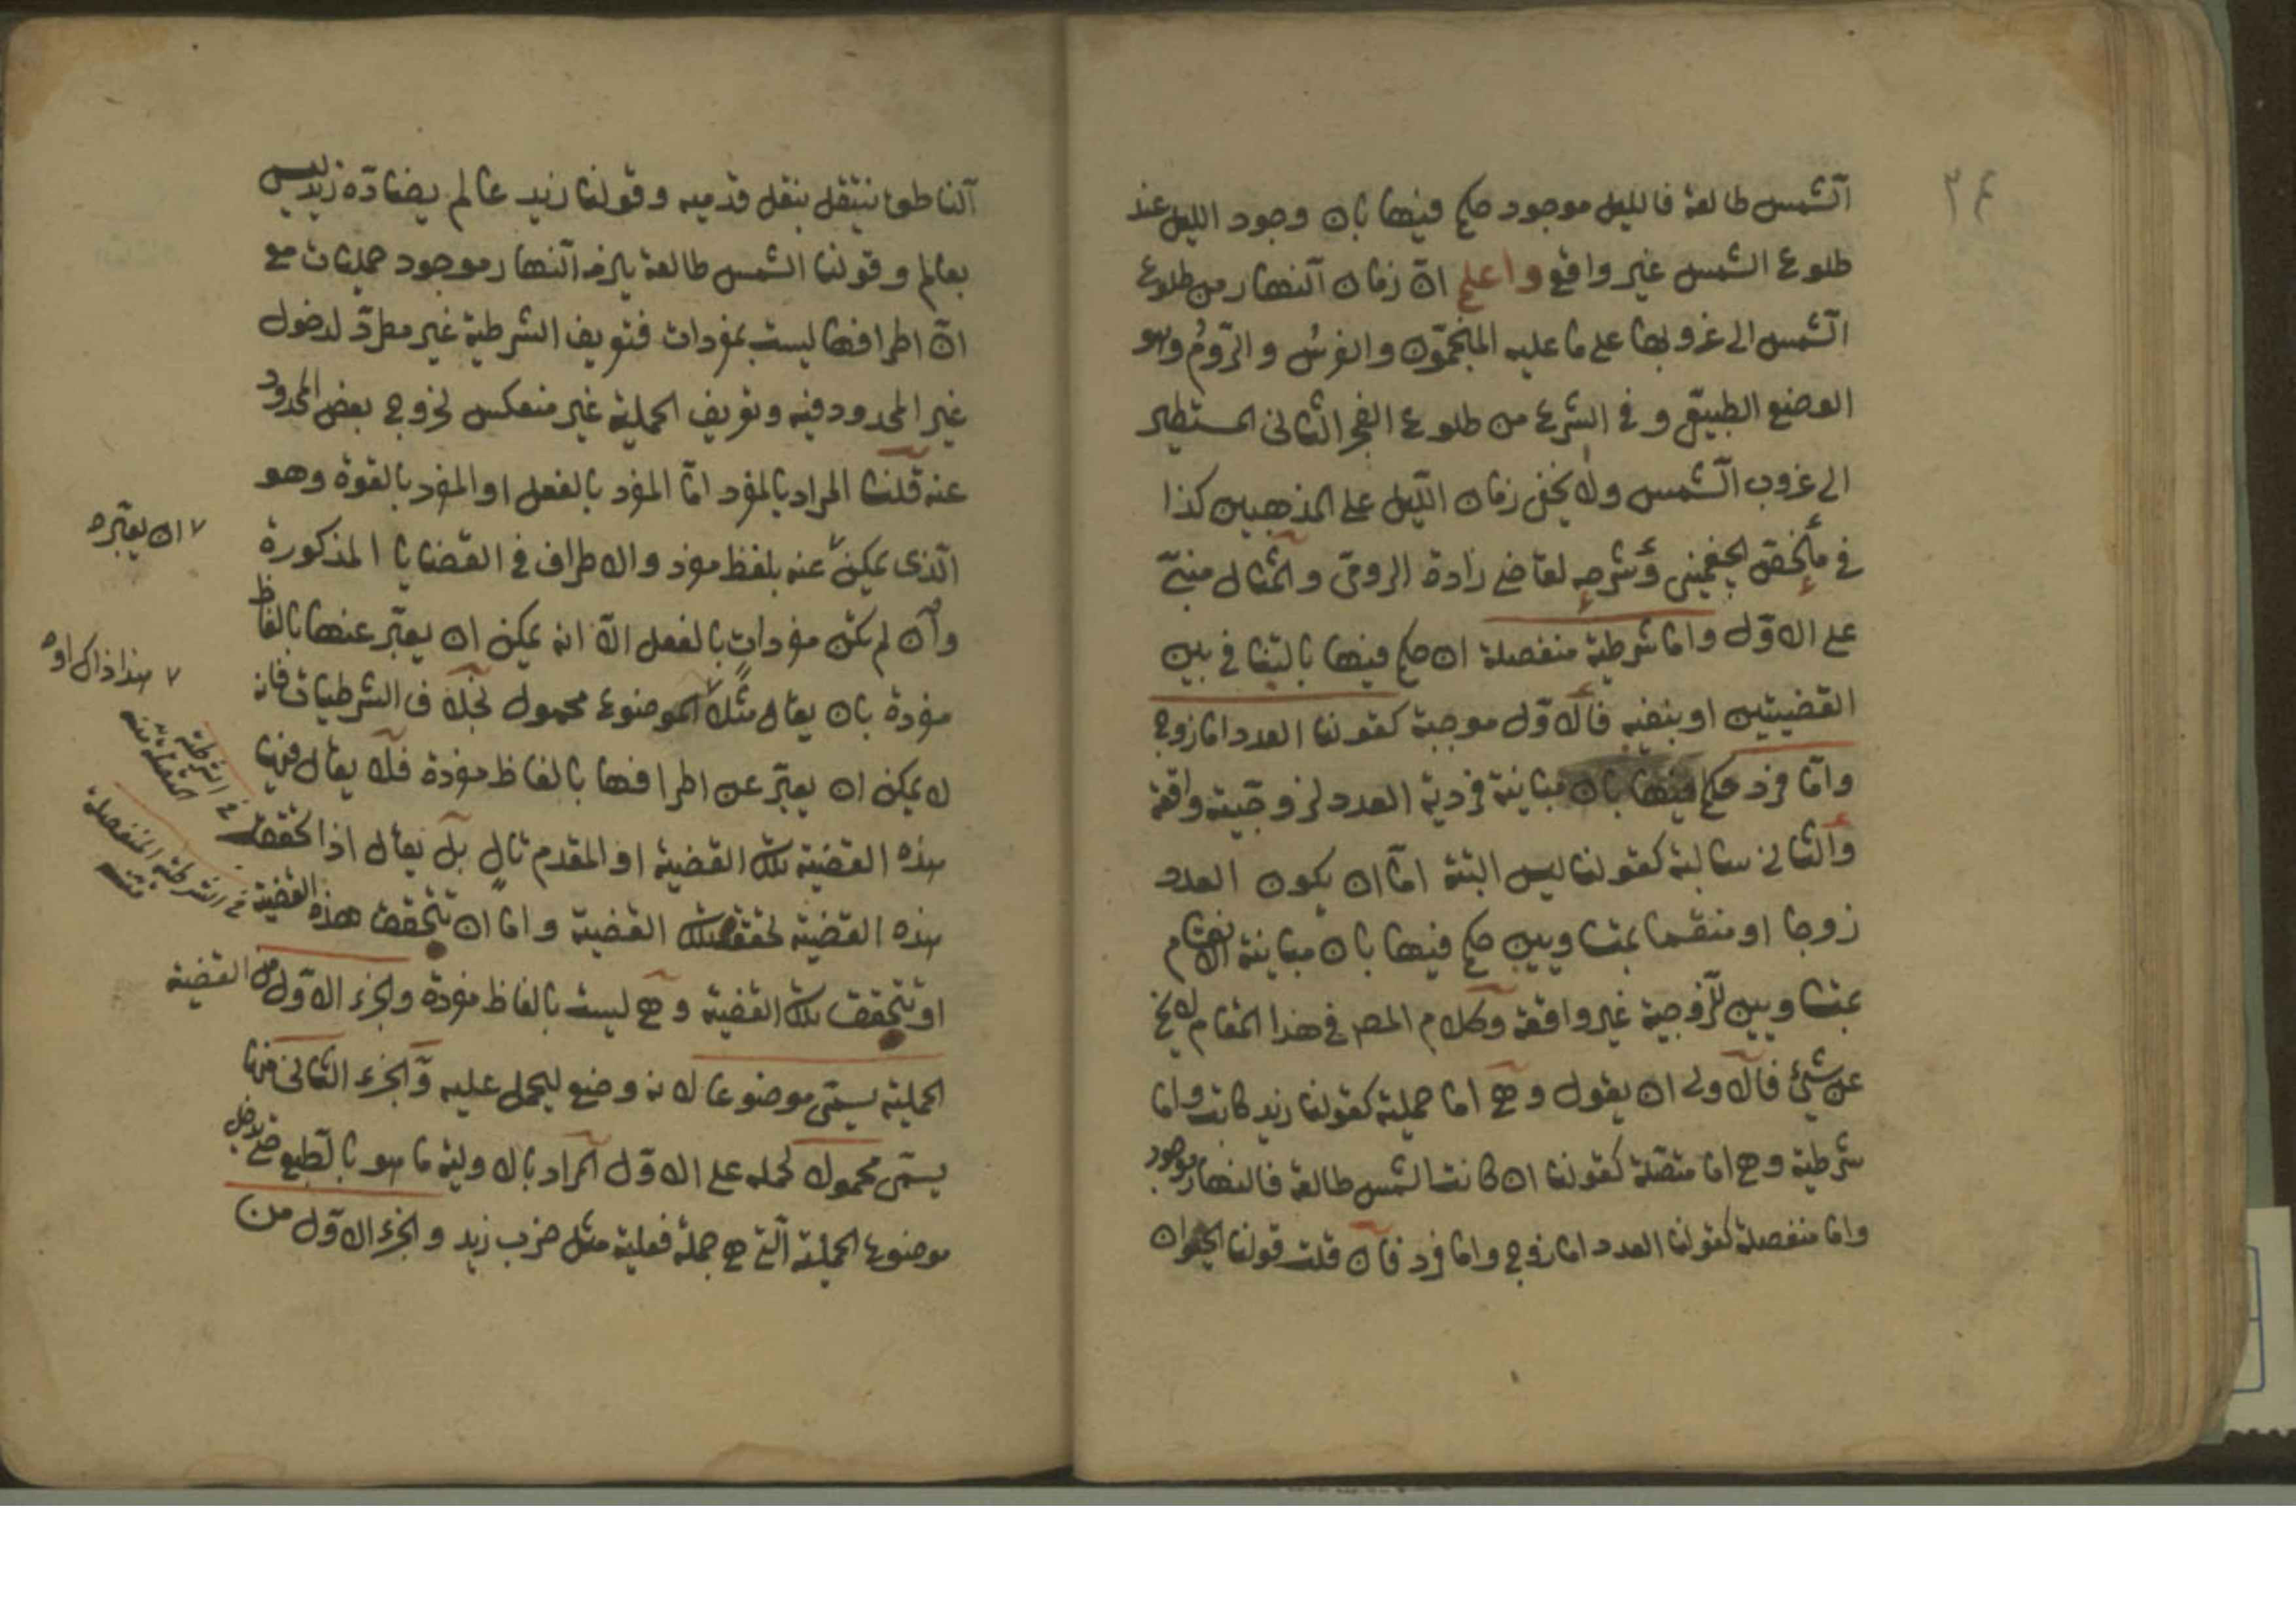 ٣٤
الشمس طالعة فالليل موجود حكم فيها بان وجود الليل عند
طلوع الشمس غير واقع واعلم انّ زمان النهار من طلوع
الشمس الى غروبها على ما عليه المنجّمون والفرسُ والرّومُ وهو
الوضع الطبيعى و فى الشرع من طلوع الفجر الثانى المستطير
الى غروب الشمس ولا يخفى زمان الليل على المذهبين كذا
فى ملخص الجغمينى وشرحه لقاضى زادة الرومى والمثال مبنىّ
على الاوّل واما شرطية منفصلة ان حكم فيها بالتنافى بين
القضيتين او بنفيه فالاوّل موجبة كقولنا العدد اما زوج
وامّا فرد حكم فيها بان مباينة فردية العدد لزوجيته واقعة
والثانى سالبة كقولنا ليس البتة امّا ان يكون العدد
زوجا او منقسما بمتساويين حكم فيها بان مباينة الانقسام
بمتساويين للزوجية غير واقعة وكلام المص فى هذا المقام لا يخ
عن شئ فالاولى ان يقول وهى اما حملية كقولنا زيد كاتب واما
شرطية وهى اما متصّلة كقولنا ان كانت الشمس طالعة فالنهار موجود
واما منفصلة كقولنا العدد اما زوج واما فرد فان قلت قولنا الحيوان
الناطق ينتقل بنقل قدميه وقولنا زيد عالم يضادّه زيد ليس
بعالم وقولنا الشمس طالعة يلزمه النهار موجود حمليات مع
انّ اطرافها ليست بمفردات فتعريف الشرطية غير مطرّد لدخول
غير المحدود فيه وتعريف الحملية غير منعكس لخروج بعض المحدود
عنه قلنا المراد بالمفرد امّا المفرد بالفعل او المفرد بالقوة وهو
الّذى يمكن عنه بلفظ مفرد والاطراف فى القضايا المذكورة
ان يعبّره
وان لم تكن مفردات بالفعل الاّ انه يمكن ان يعبّر عنها بالفاظ
مفردة بان يقال مثلا الموضوع محمول بخلاف الشرطيات فانه
هذا ذاك او
لا يمكن ان يعبّر عن اطرافها بالفاظ مفردة فلا يقال فيها
هذه القضية تلك القضية او المقدم تال بل يقال اذا تحققت
فى الشرطية المتصلة منه
هذه القضية تحققت تلك القضية واما ان تتحقق هذه القضية
فى الشرطية المنفصلة منه
او تتحقق تلك القضية وهى ليست بالفاظ مفردة والجزء الاوّل من القضية
الحملية يسمّى موضوعا لانه وضع ليحمل عليه والجزء الثانى منها
يسمّى محمولا لحمله على الاوّل المراد بالاولية ما هو بالطبع حتى يدخل
موضوع الحملية الّتى هى جملة فعلية مثل ضرب زيد والجزء الاوّل من